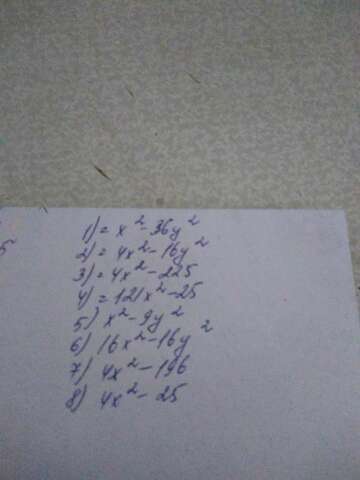 1) = x² - 36y²
2) = 4x² - 16y²
3) = 4x² - 225
4) = 121x² - 25
5) x² - 9y²
6) 16x² - 16y²
7) 4x² - 196
8) 4x² - 25